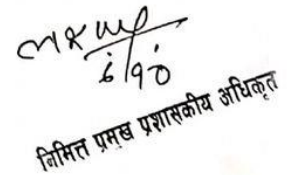 ६/१०
निमित्त प्रमुख प्रशासकीय अधिकृत